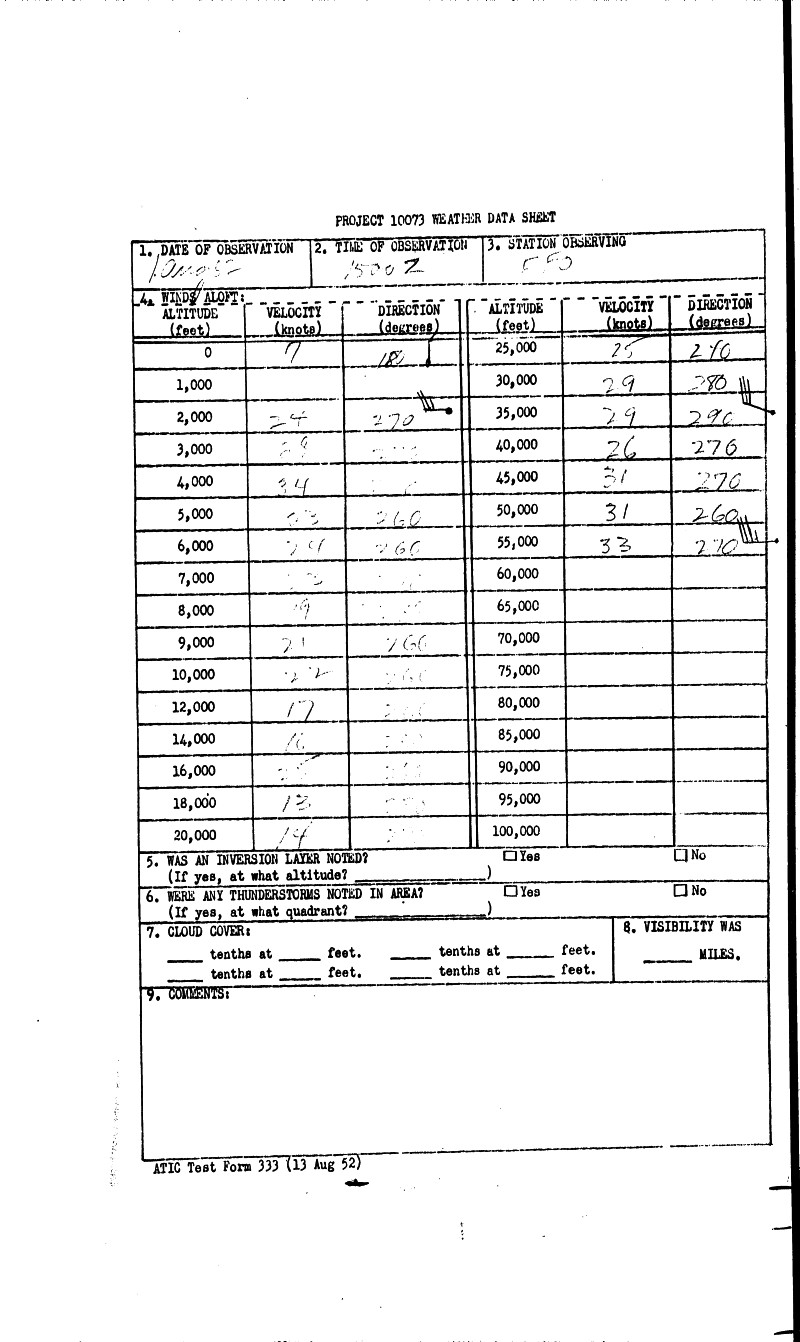 PROJECT 10073 WEATHER DATA SHEET
1. DATE OF OBSERVATION 2. TIME OF OBSERVATION 3. STATION OBSERVING
1 Aug 52 1500 Z FFO
4. WINDS ALOFT:
ALTITUDE VELOCITY DIRECTION ALTITUDE VELOCITY DIRECTION
(feet) (knots) (degrees) (feet) (knots) (degrees)
0 7 180 25,000 25 270
1,000 30,000 29 280
2,000 24 270 35,000 29 290
3,000 40,000 26 270
4,000 34 45,000 31 270
5,000 260 50,000 31 260
6,000 260 55,000 33 270
7,000 60,000
8,000 65,000
9,000 21 260 70,000
10,000 22 75,000
12,000 17 80,000
14,000 85,000
16,000 90,000
18,000 13 95,000
20,000 14 100,000
5. WAS AN INVERSION LAYER NOTED? Yes No
(If yes, at what altitude? )
6. WERE ANY THUNDERSTORMS NOTED IN AREA? Yes No
(If yes, at what quadrant? )
7. CLOUD COVER: 8. VISIBILITY WAS
tenths at feet. tenths at feet. MILES.
tenths at feet. tenths at feet.
9. COMMENTS:
ATIC Test Form 333 (13 Aug 52)